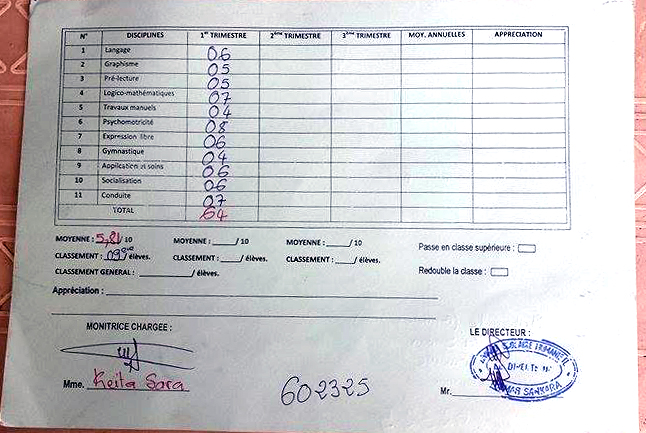 N° DISCIPLINES 1er TRIMESTRE 2ème TRIMESTRE 3ème TRIMESTRE MOY. ANNUELLES APPRECIATION
1 Langage 06
2 Graphisme 05
3 Pré-lecture 05
4 Logico-mathématiques 07
5 Travaux manuels 04
6 Psychomotricité 08
7 Expression libre 06
8 Gymnastique 04
9 Application et soins 06
10 Socialisation 06
11 Conduite 07
TOTAL 64
MOYENNE : 5,81/10 MOYENNE : ____/10 MOYENNE : ____/10
Passe en classe supérieure :
CLASSEMENT : 09ème/élèves. CLASSEMENT : ____/élèves. CLASSEMENT : ____/élèves.
CLASSEMENT GENERAL : ________/élèves.
Redouble la classe :
Appréciation :
MONITRICE CHARGEE : LE DIRECTEUR :
Mme. Keita Sara
602325
Mr.
SANKARA